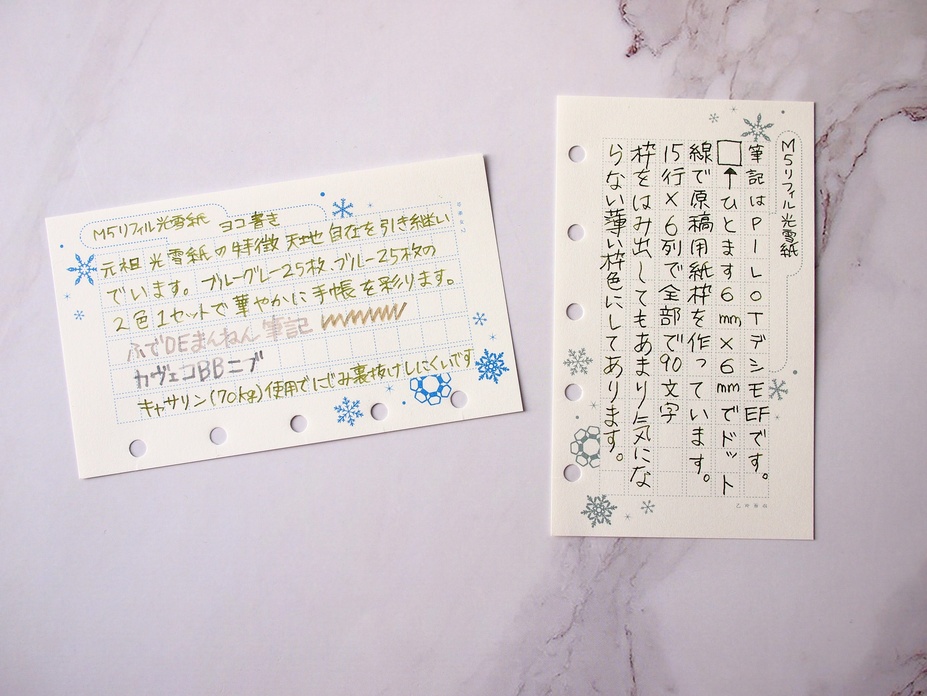 M5リフィル光雪紙 ヨコ書き
元祖光雪紙の特徴天地自在を引き継い
でいます。ブルーグレー25枚、ブルー25枚の
2色1セットで華やかに手帳を彩ります。
ふでDEまんねん筆記
カヴェコBBニブ
キャサリン(70kg)使用でにじみ裏抜けしにくいです
M5リフィル光雪紙
筆記はPILOTデシモEFです。
□↑ひとます6mm×6mmでドット
線で原稿用紙枠を作っています。
15行×6列で全部で90文字
枠をはみ出してもあまり気にな
らない薄い枠色にしてあります。